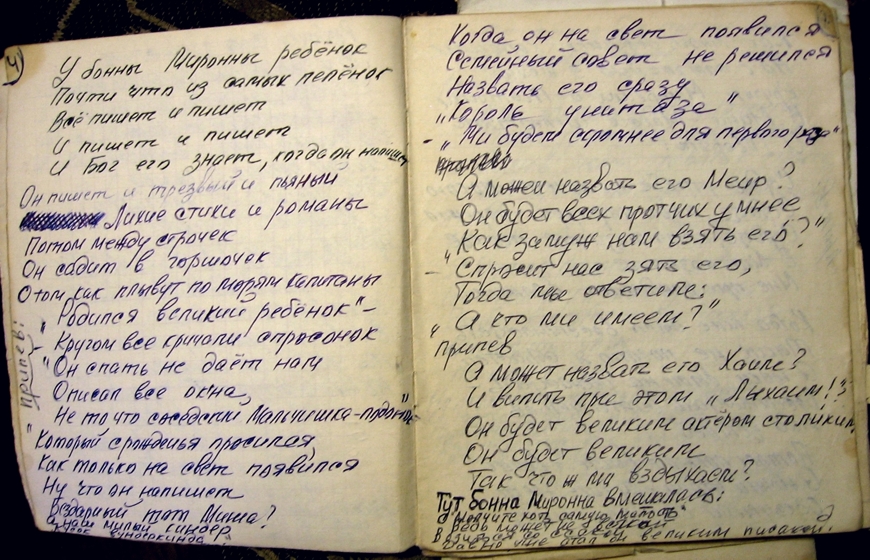 4
У бонны Миронны ребёнок
Почти что из самых пелёнок
Всё пишет и пишет
И пишет и пишет
И Бог его знает, когда он напишет
Он пишет и трезвый и пьяный
Лихие стихи и романы
Потом между строчек
Он садит в горшочек
О том как плывут по морям капитаны
припев:
"Родился великий ребёнок" –
Кругом все кричали спросонок
"Он спать не даёт нам
Описал все окна,
Не то что соседский Мальчишка-подонок"
"Который срожденья просился
Как только на свет появился
Ну что он напишет
Бездарный этот Миша?
А наш милый киндер
вундеркинда
Когда он на свет появился
Семейный совет не решился
Назвать его сразу
"Король унитаза"
– "Ми будем скромнее для первого раза"
А может назвать его Меир?
Он будет всех протчих умнее
"Как замуж нам взять его?"
– Спросит нас зять его,
Тогда мы ответили:
"А что ми имеем?"
припев
А может назвать его Хаим?
И випить при этом "Лыхаим!"?
Он будет великим актёром столиким,
Он будет великим
Так что ж ми вздыхаем?
Тут бонна Миронна вмешалась:
великим писакой!